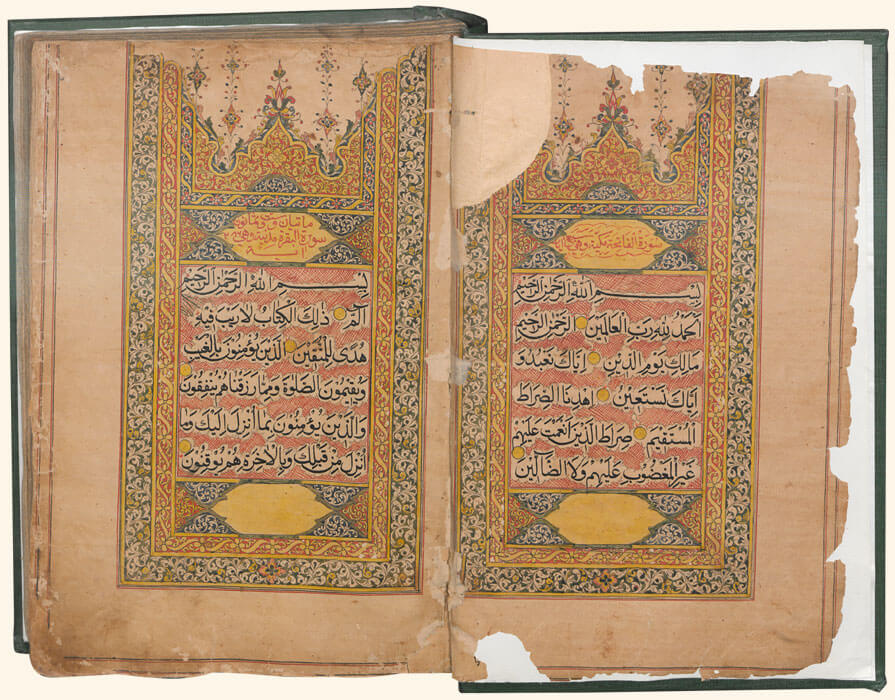 سورة الفاتحة مكية وهي سبع
بِسْمِ اللهِ الرَّحْمٰنِ الرَّحِيْمِ
اَلْحَمْدُ لِلّٰهِ رَبِّ الْعَالَمِيْنَ الرَّحْمٰنِ الرَّحِيْمِ
مَالِكِ يَوْمِ الدِّيْنِ اِيَّاكَ نَعْبُدُ وَ
اِيَّاكَ نَسْتَعِيْنُ اِهْدِنَا الصِّرَاطَ
الْمُسْتَقِيْمَ صِرَاطَ الَّذِيْنَ اَنْعَمْتَ عَلَيْهِمْ
غَيْرِ الْمَغْضُوْبِ عَلَيْهِمْ وَلَا الضَّالِّيْنَ
ماتان وست ثمانون
سورة البقرة مدنية وهي
بِسْمِ اللهِ الرَّحْمٰنِ الرَّحِيْمِ
الٓمّٓ ذٰلِكَ الْكِتَابُ لَا رَيْبَ فِيْهِ
هُدًى لِلْمُتَّقِيْنَ الَّذِيْنَ يُؤْمِنُوْنَ بِالْغَيْبِ
وَيُقِيْمُوْنَ الصَّلٰوةَ وَمِمَّا رَزَقْنَاهُمْ يُنْفِقُوْنَ
وَالَّذِيْنَ يُؤْمِنُوْنَ بِمَا اُنْزِلَ اِلَيْكَ وَمَا
اُنْزِلَ مِنْ قَبْلِكَ وَبِالْاٰخِرَةِ هُمْ يُوْقِنُوْنَ